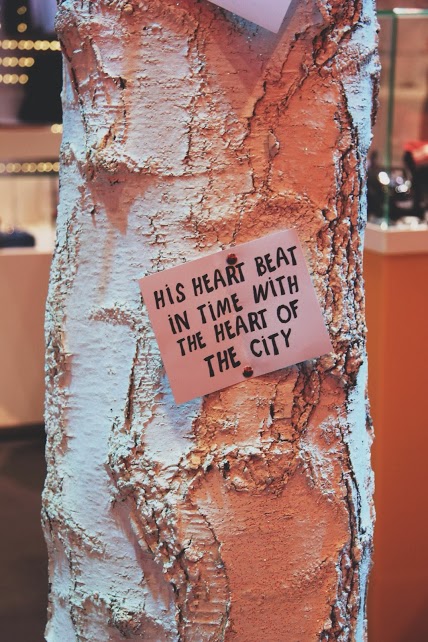 HiS HEART BEAT
iN TiME WiTH
THE HEART OF
THE CiTY